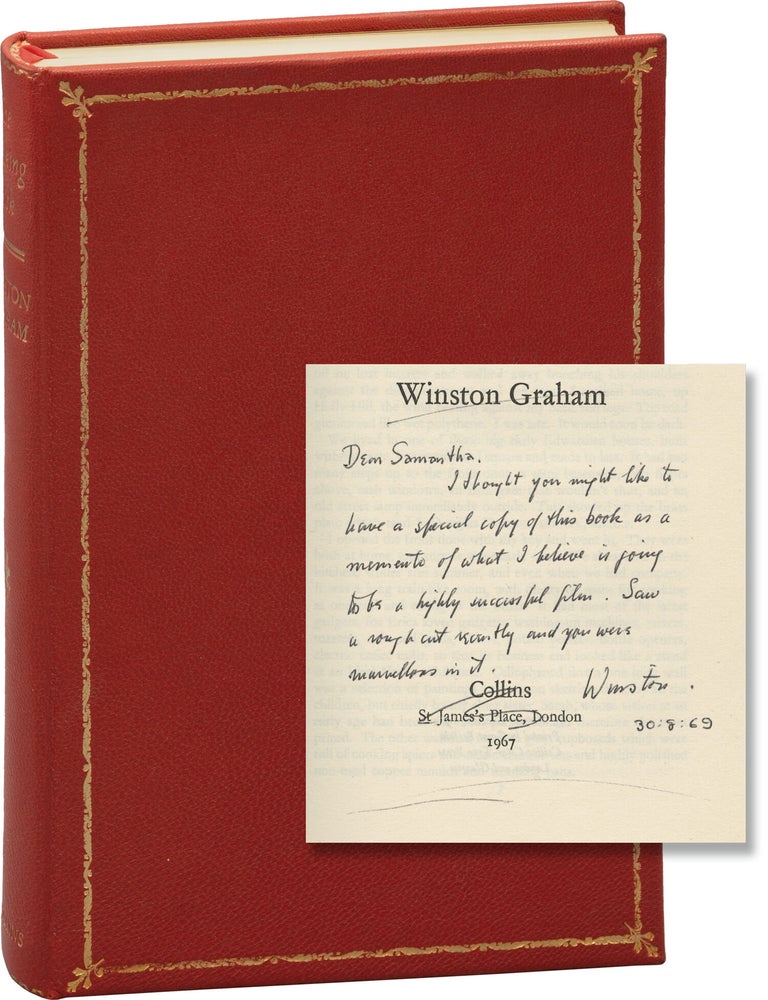 ing
TON
HAM
Winston Graham
Dear Samantha.
I thought you might like to
have a special copy of this book as a
memento of what I believe is going
to be a highly successful film. Saw
a rough cut recently and you were
marvellous in it.
Collins
Winston.
St James's Place, London
30:8:69
1967